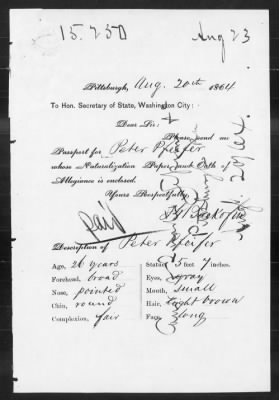 15.250
Aug 23
Pittsburgh, Aug. 20th 1864
To Hon. Secretary of State, Washington City:
Dear Sir:
Please send me
Passport for Peter Pfeifer
whose Naturalization Paper and Oath of
Allegiance is enclosed.
Yours Respectfully,
Paid
Description of Peter Pfeifer
Age, 26 years
Stature, 5 feet 7 inches.
Forehead, broad
Eyes, gray
Nose, pointed
Mouth, small
Chin, round
Hair, light brown
Complexion, fair
Face, long